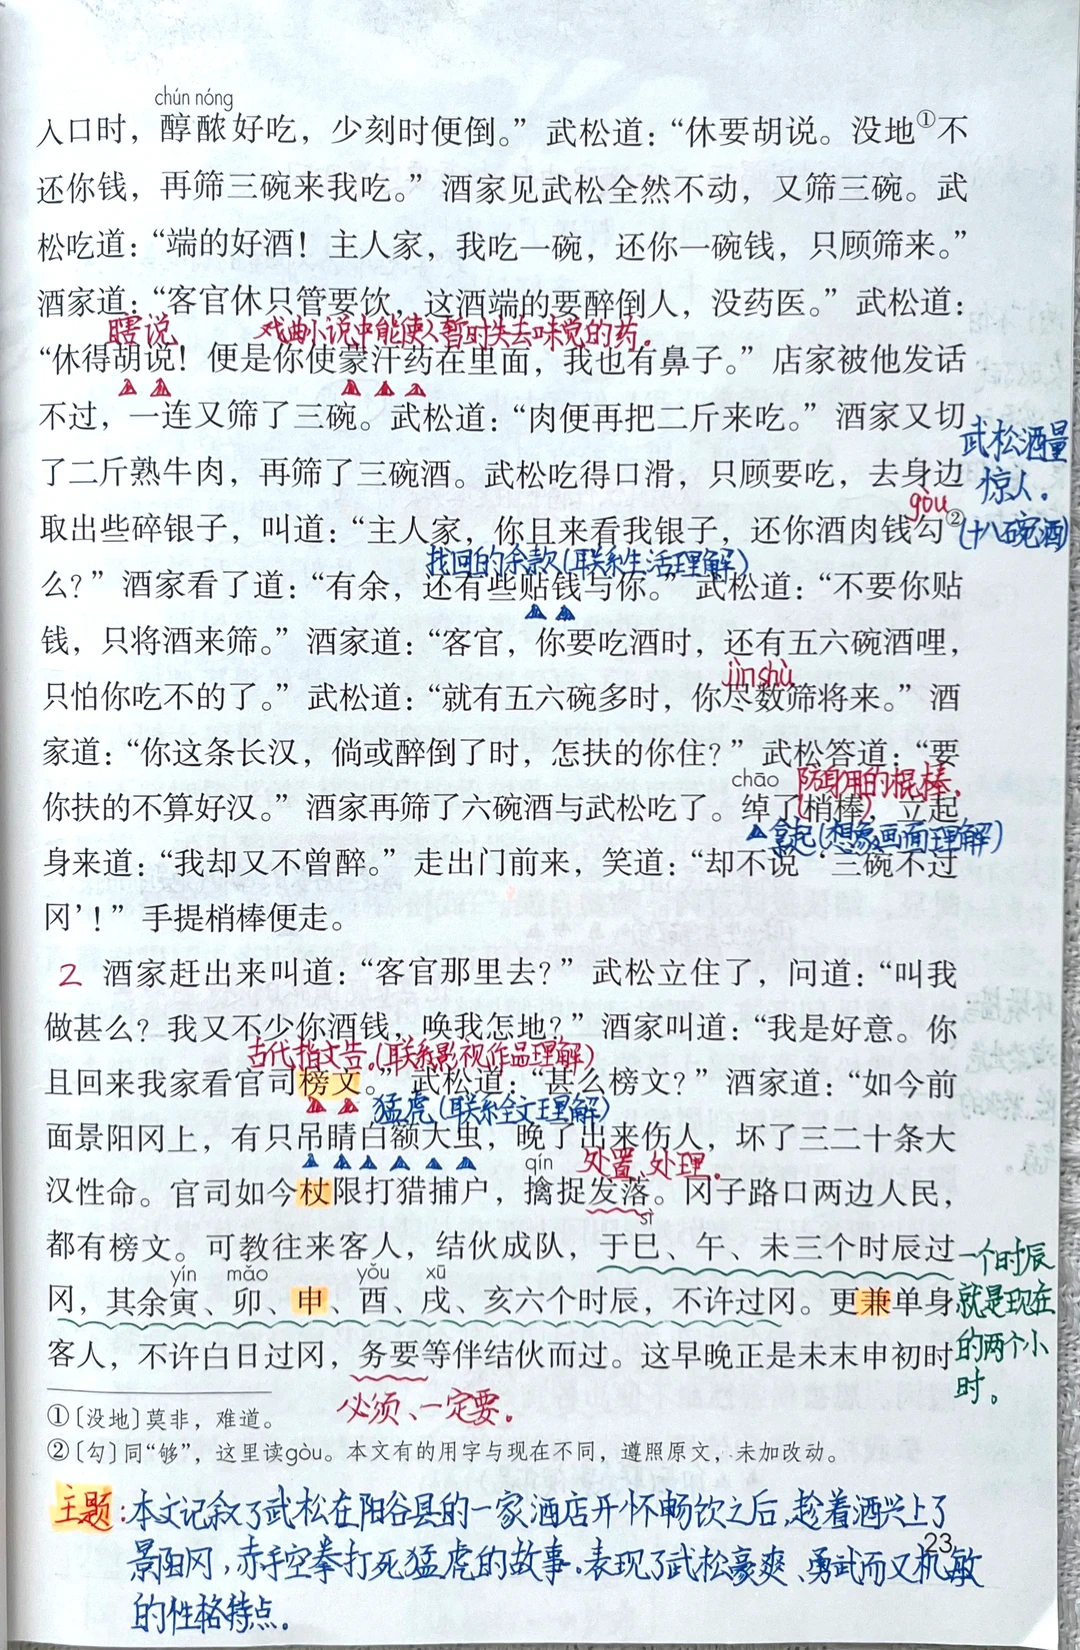 chún nóng
入口时，醇酿好吃，少刻时便倒。”武松道：“休要胡说。没地①不
还你钱，再筛三碗来我吃。”酒家见武松全然不动，又筛三碗。武
松吃道：“端的好酒！主人家，我吃一碗，还你一碗钱，只顾筛来。”
酒家道：“客官休只管要饮，这酒端的要醉倒人，没药医。”武松道：
瞎说 戏曲小说中能使人暂时失去味觉的药。
“休得胡说！便是你使蒙汗药在里面，我也有鼻子。”店家被他发话
不过，一连又筛了三碗。武松道：“肉便再把二斤来吃。”酒家又切
武松酒量
了二斤熟牛肉，再筛了三碗酒。武松吃得口滑，只顾要吃，去身边
惊人。
gòu
取出些碎银子，叫道：“主人家，你且来看我银子，还你酒肉钱勾②
(十八碗酒)
找回的余款(联系生活理解)
么？”酒家看了道：“有余，还有些贴钱与你。”武松道：“不要你贴
钱，只将酒来筛。”酒家道：“客官，你要吃酒时，还有五六碗酒哩，
jìn shù
只怕你吃不的了。”武松道：“就有五六碗多时，你尽数筛将来。”酒
家道：“你这条长汉，倘或醉倒了时，怎扶的你住？”武松答道：“要
chāo 防身用的棍棒。
你扶的不算好汉。”酒家再筛了六碗酒与武松吃了。绰了(梢棒)，立起
拿起(想象画面理解)
身来道：“我却又不曾醉。”走出门前来，笑道：“却不说‘三碗不过
冈’！”手提梢棒便走。
2 酒家赶出来叫道：“客官那里去？”武松立住了，问道：“叫我
做甚么？我又不少你酒钱，唤我怎地？”酒家叫道：“我是好意。你
古代指文告。(联系影视作品理解)
且回来我家看官司榜文。”武松道：“甚么榜文？”酒家道：“如今前
猛虎(联系全文理解)
面景阳冈上，有只吊睛白额大虫，晚了出来伤人，坏了三二十条大
qín 处置、处理。
汉性命。官司如今杖限打猎捕户，擒捉发落。冈子路口两边人民，
sì
都有榜文。可教往来客人，结伙成队，于巳、午、未三个时辰过
一个时辰
yín mǎo yǒu xū
冈，其余寅、卯、申、酉、戌、亥六个时辰，不许过冈。更兼单身
就是现在
客人，不许白日过冈，务要等伴结伙而过。这早晚正是未末申初时
的两个小
时。
必须、一定要。
①〔没地〕莫非，难道。
②〔勾〕同“够”，这里读gòu。本文有的用字与现在不同，遵照原文，未加改动。
主题：本文记叙了武松在阳谷县的一家酒店开怀畅饮之后，趁着酒兴上了
23
景阳冈，赤手空拳打死猛虎的故事。表现了武松豪爽、勇武而又机敏
的性格特点。